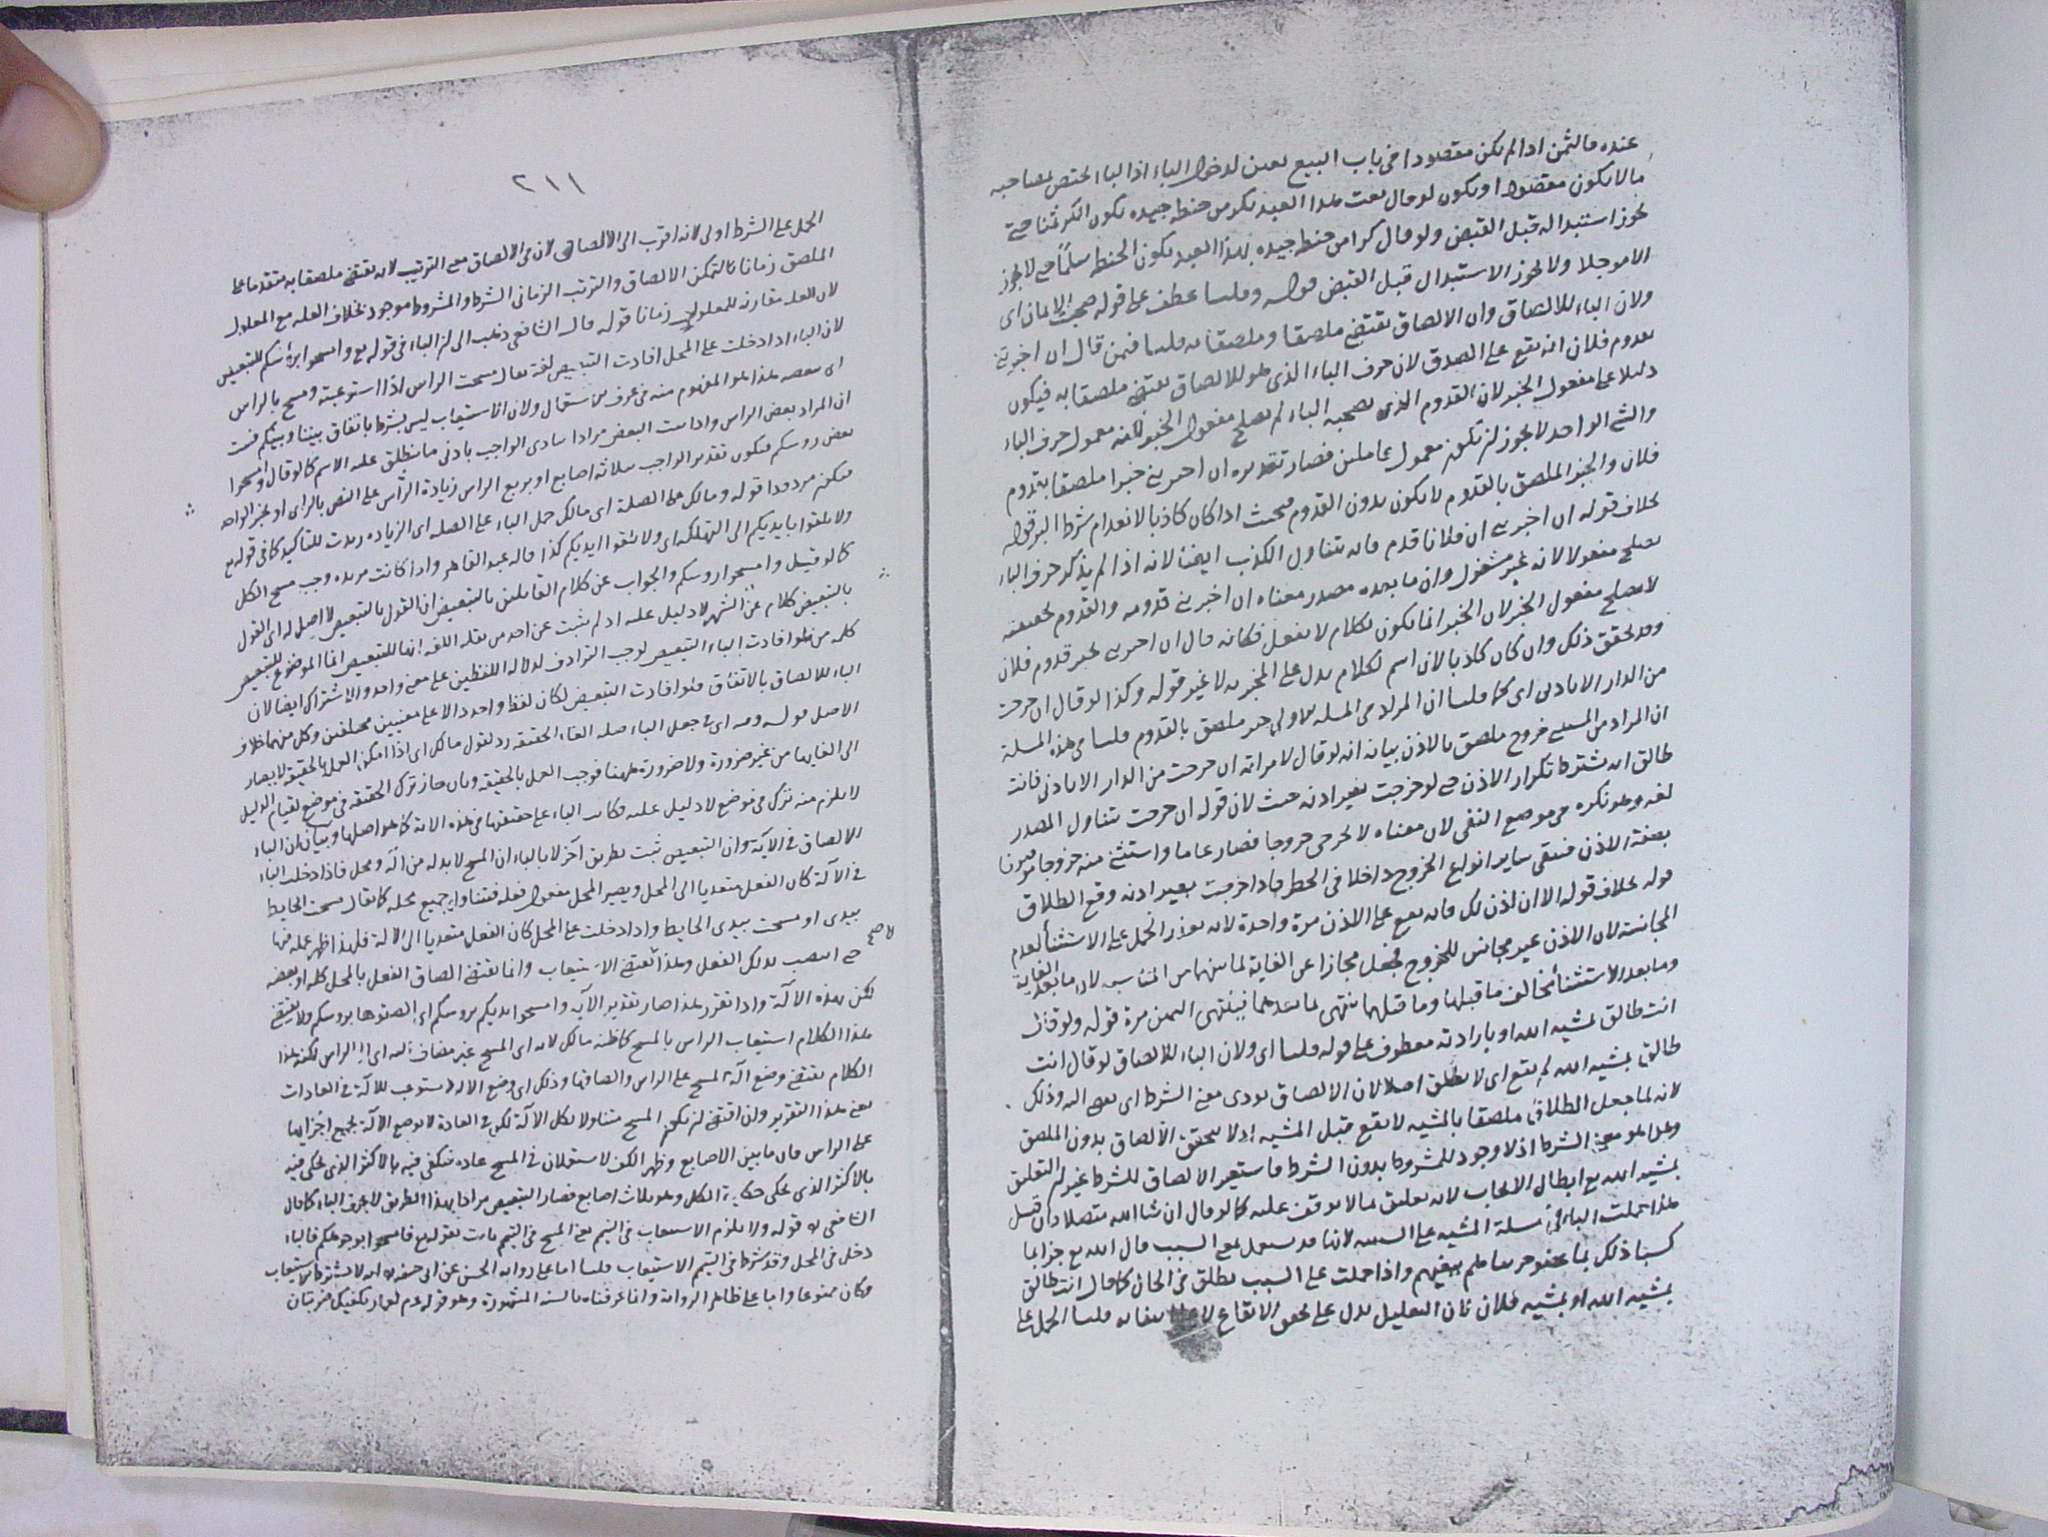 عنده فالثمن اذا لم يكن مقصودا في باب البيع تعين لدخول الباء اذ الباء تختص بمصاحبه
ما لا يكون مقصودا ويكون لو قال بعت هذا العبد بكر من حنطه جيده يكون الكر ثمنا حتى
يجوز استبداله قبل القبض ولو قال كرا من حنطه جيده بهذا العبد يكون الحنطه سلما حتى لا يجوز
الا موجلا ولا يجوز الاستبدال قبل القبض قوله وقلنا عطف على قوله صحبت الاثمان اى
ولان الباء للالصاق وان الالصاق يقتضي ملصقا وملصقا به قلنا فمن قال ان اخبرتني
بقدوم فلان انه يقع على الصدق لان حرف الباء الذي هو للالصاق يقتضي ملصقا به فيكون
دليلا على مفعول الخبر لان القدوم الذي يصحبه الباء لم يصلح مفعول الخبر لانه معمول حرف الباء
والشي الواحد لا يجوز ان تكون معمول عاملين فصار تقديره ان اخبرتني خبرا ملصقا بقدوم
فلان والخبر الملصق بالقدوم لا يكون بدون القدوم فيحنث اذا كان كاذبا لانعدام شرط البر قوله
بخلاف قوله ان اخبرتني ان فلانا قدم فانه يتناول الكذب ايضا لانه اذا لم يذكر حرف الباء
يصلح مفعولا لانه غير مشغول وان ما بعده مصدر معناه ان اخبرتني قدومه والقدوم بحقيقته
لا يصلح مفعول الخبر لان الخبر انما يكون بكلام لا بفعل فكانه قال ان اخبرتني بخبر قدوم فلان
وقد تحقق ذلك وان كان كاذبا لان اسم لكلام يدل على المخبر به لا غير قوله وكذا لو قال ان خرجت
من الدار الا باذني اى كما قلنا ان المراد من المسله الاولى خبر ملصق بالقدوم قلنا في هذه المسلة
ان المراد من المستثنى خروج ملصق بالاذن بيانه انه لو قال لامراته ان خرجت من الدار الا باذني فانت
طالق انه يشترط تكرار الاذن حتى لو خرجت بغير اذنه حنث لان قوله ان خرجت يتناول المصدر
لغة وهو نكره في موضع النفي لان معناه لا تخرجي خروجا فصار عاما واستثنى منه خروجا موصوفا
بصفة الاذن فبقي ساير انواع الخروج داخلا في الحظر فاذا خرجت بغير اذنه وقع الطلاق
قوله بخلاف قوله الا ان اذن لك فانه يقع على الاذن مرة واحدة لانه تعذر الحمل على الاستثنا لعدم
المجانسة لان الاذن غير مجانس للخروج فجعل مجازا عن الغاية لما بينهما من المناسبه لان ما بعد الغاية
وما بعد الاستثنا يخالف ما قبلها وما قبلهما ينتهى بما بعدهما فينتهى اليمين مرة قوله ولو قال
انت طالق بمشيه الله او بارادته معطوف على قوله قلنا اى ولان الباء للالصاق لو قال انت
طالق بمشيه الله لم يقع اى لا يطلق اصلا لان الالصاق يودى معنى الشرط اى يفضى اليه وذلك
لانه لما جعل الطلاق ملصقا بالمشيه لا يقع قبل المشيه اذ لا يتحقق الالصاق بدون الملصق
وهذا هو معنى الشرط اذ لا وجود للمشروط بدون الشرط فاستعير الالصاق للشرط غير ان التعليق
بمشيه الله مع ابطال الايجاب لانه تعليق بما لا يوقف عليه كما لو قال ان شا الله متصلا وان قيل
هذا حملت الباء في مسلة المشيه على السببيه لانها قد يستعمل بمعنى السبب قال الله تع جزا بما
كسبا ذلك بما عصوا جزيناهم ببغيهم واذا حملت على السبب يطلق في الحال كما قال انت طالق
بمشيه الله او بمشيه فلان فان التعليل يدل على تحقق الايقاع لا على انتفائه قلنا الحمل على
٢١١
الحمل على الشرط اولى لانه اقرب الى الالصاق لان في الالصاق معنى الترتيب لانه يقتضي ملصقا به متقدما على
الملصق زمانا ليتمكن الالصاق والترتيب الزماني الشرط والمشروط موجود بخلاف العله مع المعلول
لان العله مقارنه للمعلول زمانا قوله قال الشافعي ذهب الى ان الباء في قوله تع وامسحوا برؤسكم للتبعيض
لان الباء اذا دخلت على المحل افادت التبعيض لغة يقال مسحت الراس اذا استوعبته ومسح بالراس
اى ببعضه هذا هو المفهوم منه في عرف الاستعمال ولان الاستيعاب ليس بشرط باتفاق بيننا وبينكم فثبت
ان المراد بعض الراس واذا ثبت البعض مرادا يتادى الواجب بادنى ما ينطلق عليه الاسم كما لو قال وامسحوا
بعض روسكم فيكون تقدير الواجب بثلاثه اصابع او بربع الراس زيادة الراس على النص بالراى او بخبر الواحد
فيكون مردودا قوله ومالك على الصلة اى مالك حمل الباء على الصله اى الزياده زيدت للتاكيد كما في قوله تع
ولا تلقوا بايديكم الى التهلكه اى ولا تلقوا ايديكم كذا قاله عبد القاهر واذا كانت مزيده وجب مسح الكل
كما لو قيل وامسحوا روسكم والجواب عن كلام القائلين بالتبعيض ان القول بالتبعيض لا اصل له اى القول
بالتبعيض كلام عن الشهوة لا دليل عليه اذ لم يثبت عن احد من نقله اللغه انها للتبعيض انما الموضوع للتبعيض
كله من فلو افادت الباء التبعيض لوجب الترادف لدلالة اللفظين على معنى واحد والاشتراك ايضا لان
الباء للالصاق بالاتفاق فلو افادت التبعيض لكان لفظ واحد دالا على معنيين مختلفين وكل منهما خلاف
الاصل قوله وفيه اى في جعل الباء صله الغاء الحقيقه رد لقول مالك اى اذا امكن العمل بالحقيقه لا يصار
الى الغايها من غير ضرورة ولا ضرورة ههنا فوجب العمل بالحقيقه وبان جاز ترك الحقيقه في موضع لقيام الدليل
لا يلزم منه ترك في موضع لا دليل عليه فكانت الباء على حقيقتها في هذه الاية كما هو اصلها وبيان ان الباء
للالصاق في الآية وان التبعيض ثبت بطريق آخر لا بالباء ان المسح لا بد له من آلة ومحل فاذا دخلت الباء
في الآلة كان الفعل متعديا الى المحل ويصير المحل مفعول فعله فتناول جميع محله كما يقال مسحت الحايط
بيدى او مسحت بيدى الحايط واذا دخلت على المحل كان الفعل متعديا الى الالة فلهذا اظهر عمله فيها
حتى انتصب بذلك الفعل وهذا يقتضي الاستيعاب وانما يقتضي الصاق الفعل بالمحل كله او بعضه
لاصح
لكن بهذه الآلة واذا تقرر هذا صار تقدير الآيه وامسحوا ايديكم بروسكم اى الصقوها بروسكم ولا يقتضي
هذا الكلام استيعاب الراس بالمسح كما ظنه مالك لانه اى المسح غير مضاف اليه اى الى الراس لكنه هذا
الكلام يقتضي وضع آلة المسح على الراس والصاقها وذلك اى وضع الاله لا يستوعب للالة في العادات
يعني هذا التقرير وان اقتضى ان يكون المسح متناولا لكل الآلة لكن في العادة لا توضع الآلة بجميع اجزايها
على الراس فان ما بين الاصابع وظهر الكف لا يستعملان في المسح عاده فيكتفى فيه بالاكثر الذي يحكى فيه
بالاكثر الذي يحكى حكاية الكل وهو ثلاث اصابع فصار التبعيض مرادا بهذا الطريق لا بحرف الباء كما قال
الشافعي قوله ولا يلزم الاستيعاب في التيمم يعني المسح في التيمم ثابت بقوله تع فامسحوا بوجوهكم فالباء
دخل في المحل وقد شرط في التيمم الاستيعاب قلنا اما على رواية الحسن عن ابى حنيفه انه لا يشترط الاستيعاب
فكان ممنوعا واما على ظاهر الرواية وانما عرفناه بالسنه المشهورة وهو قوله عم لعمار يكفيك ضربتان